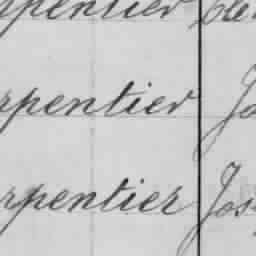 rpentier
rpentier Jo
rpentier Jos